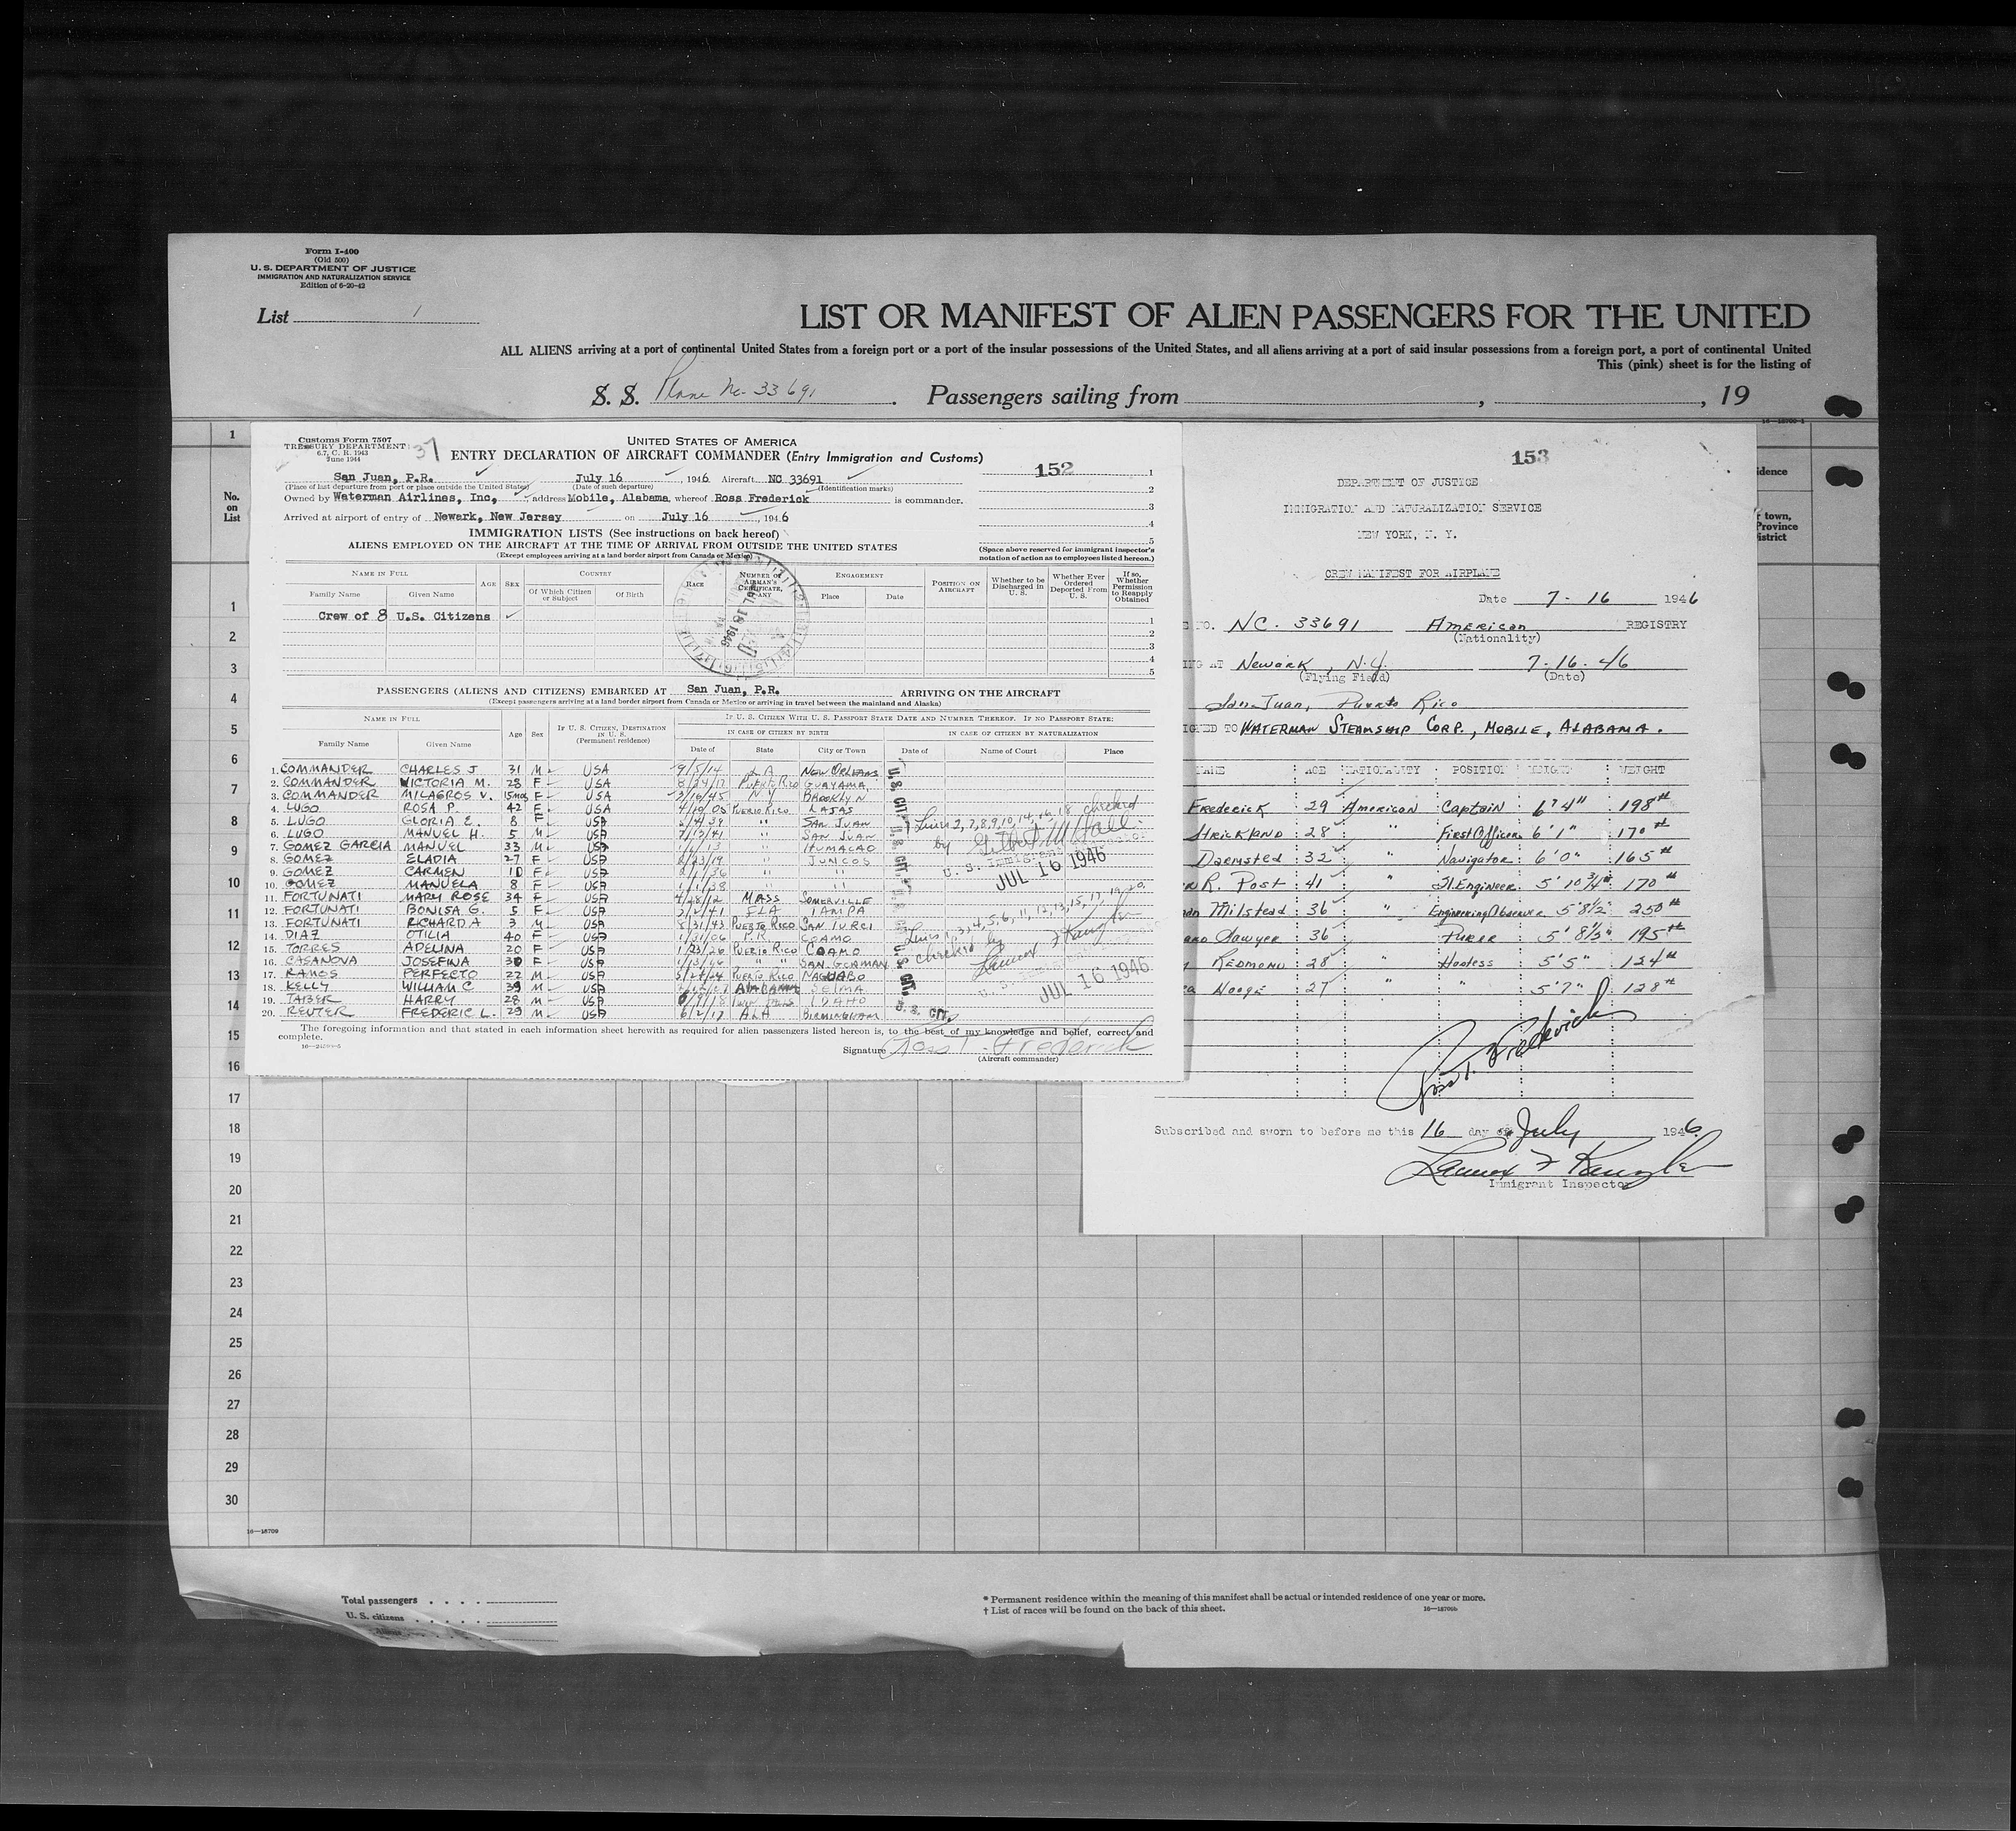 Form I-400
(Old 500)
U. S. DEPARTMENT OF JUSTICE
IMMIGRATION AND NATURALIZATION SERVICE
Edition of 6-20-42
List 1
LIST OR MANIFEST OF ALIEN PASSENGERS FOR THE UNITED
ALL ALIENS arriving at a port of continental United States from a foreign port or a port of the insular possessions of the United States, and all aliens arriving at a port of said insular possessions from a foreign port, a port of continental United
This (pink) sheet is for the listing of
S. S. Plane No. 33691. Passengers sailing from , , 19
No. on List
Customs Form 7507
TREASURY DEPARTMENT
6.7, C. R. 1943
June 1944
37
UNITED STATES OF AMERICA
ENTRY DECLARATION OF AIRCRAFT COMMANDER (Entry Immigration and Customs)
152
San Juan, P.R. July 16, 1946 Aircraft NC 33691
(Place of last departure from port or place outside the United States) (Date of such departure) (Identification marks)
Owned by Waterman Airlines, Inc, address Mobile, Alabama whereof Ross Frederick is commander.
Arrived at airport of entry of Newark, New Jersey on July 16, 1946
IMMIGRATION LISTS (See instructions on back hereof)
ALIENS EMPLOYED ON THE AIRCRAFT AT THE TIME OF ARRIVAL FROM OUTSIDE THE UNITED STATES
(Except employees arriving at a land border airport from Canada or Mexico)
(Space above reserved for immigrant inspector's notation of action as to employees listed hereon.)
NAME IN FULL AGE SEX COUNTRY RACE NUMBER OF AIRMAN'S CERTIFICATE, IF ANY ENGAGEMENT POSITION ON AIRCRAFT Whether to be Discharged in U. S. Whether Ever Ordered Deported From U. S. If so, Whether Permission to Reapply Obtained
Family Name Given Name Of Which Citizen or Subject Of Birth Place Date
Crew of 8 U.S. Citizens
PASSENGERS (ALIENS AND CITIZENS) EMBARKED AT San Juan, P.R. ARRIVING ON THE AIRCRAFT
(Except passengers arriving at a land border airport from Canada or Mexico or arriving in travel between the mainland and Alaska)
NAME IN FULL Age Sex IF U. S. CITIZEN, DESTINATION IN U. S. (Permanent residence) IF U. S. CITIZEN WITH U. S. PASSPORT STATE DATE AND NUMBER THEREOF. IF NO PASSPORT STATE:
IN CASE OF CITIZEN BY BIRTH IN CASE OF CITIZEN BY NATURALIZATION
Family Name Given Name Date of State City or Town Date of Name of Court Place
1. COMMANDER CHARLES J. 31 M USA 9/5/14 LA NEW ORLEANS
2. COMMANDER VICTORIA M. 28 F USA 8/29/17 PUERTO RICO GUAYAMA
3. COMMANDER MILAGROS V. 15 mos F USA 3/10/45 N.Y. BROOKLYN
4. LUGO ROSA P. 42 F USA PUERTO RICO LAJAS
5. LUGO GLORIA E. 8 F USA " SAN JUAN
6. LUGO MANUEL H. 5 M USA 7/13/41 " SAN JUAN
7. GOMEZ GARCIA MANUEL 33 M USA 1/6/13 " HUMACAO
8. GOMEZ ELADIA 27 F USA 2/23/19 " JUNCOS
9. GOMEZ CARMEN 10 F USA " "
10. GOMEZ MANUELA 8 F USA 1/1/38 " "
11. FORTUNATI MARY ROSE 34 F USA 4/28/12 MASS SOMERVILLE
12. FORTUNATI BONISA G. 5 F USA FLA TAMPA
13. FORTUNATI RICHARD A 3 M USA 8/31/43 PUERTO RICO SANTURCI
14. DIAZ OTILIA 40 F USA 1/31/06 P.R. COAMO
15. TORRES ADELINA 20 F USA 1/23/26 PUERTO RICO COAMO
16. CASANOVA JOSEFINA 30 F USA 1/13/16 " " SAN GERMAN
17. RAMOS PERFECTO 22 M USA 5/27/24 PUERTO RICO NAGUABO
18. KELLY WILLIAM C 39 M USA ALABAMA SELMA
19. TABER HARRY 28 M USA IDAHO
20. REUTER FREDERIC L. 29 M USA 6/2/17 ALA BIRMINGHAM
Lines 2,7,8,9,10,14,16,18 checked
by Gilbert M Hall
U. S. Immigrant Inspector
JUL 16 1946
Lines 1,3,4,5,6,11,12,13,15,17,19,20
checked by Lennox F Kanzler
JUL 16 1946
U. S. CIT.
The foregoing information and that stated in each information sheet herewith as required for alien passengers listed hereon is, to the best of my knowledge and belief, correct and complete.
Signature Ross T. Frederick
(Aircraft commander)
153
DEPARTMENT OF JUSTICE
IMMIGRATION AND NATURALIZATION SERVICE
NEW YORK, N. Y.
CREW MANIFEST FOR AIRPLANE
Date 7-16 1946
NO. NC. 33691 American REGISTRY
(Nationality)
ING AT Newark, N.J. 7-16-46
(Flying Field) (Date)
San Juan, Puerto Rico
IGNED TO WATERMAN STEAMSHIP CORP., MOBILE, ALABAMA.
NAME AGE NATIONALITY POSITION HEIGHT WEIGHT
Frederick 29 American Captain 6'4" 198#
Strickland 28 " First Officer 6'1" 170#
Darmsted 32 " Navigator 6'0" 165#
R. Post 41 " Fl. Engineer 5'10 3/4" 170#
Milstead 36 " Engineering Observer 5'8 1/2" 250#
Sawyer 36 " Purser 5'8 1/2" 195#
Redmond 28 " Hostess 5'5" 124#
Hooge 27 " " 5'7" 128#
Ross T. Frederick
Subscribed and sworn to before me this 16 day of July 1946
Lennox F Kanzler
Immigrant Inspector
idence
r town,
Province
istrict
1
2
3
4
5
6
7
8
9
10
11
12
13
14
15
16
17
18
19
20
21
22
23
24
25
26
27
28
29
30
16—18709
Total passengers
U. S. citizens
* Permanent residence within the meaning of this manifest shall be actual or intended residence of one year or more.
† List of races will be found on the back of this sheet.